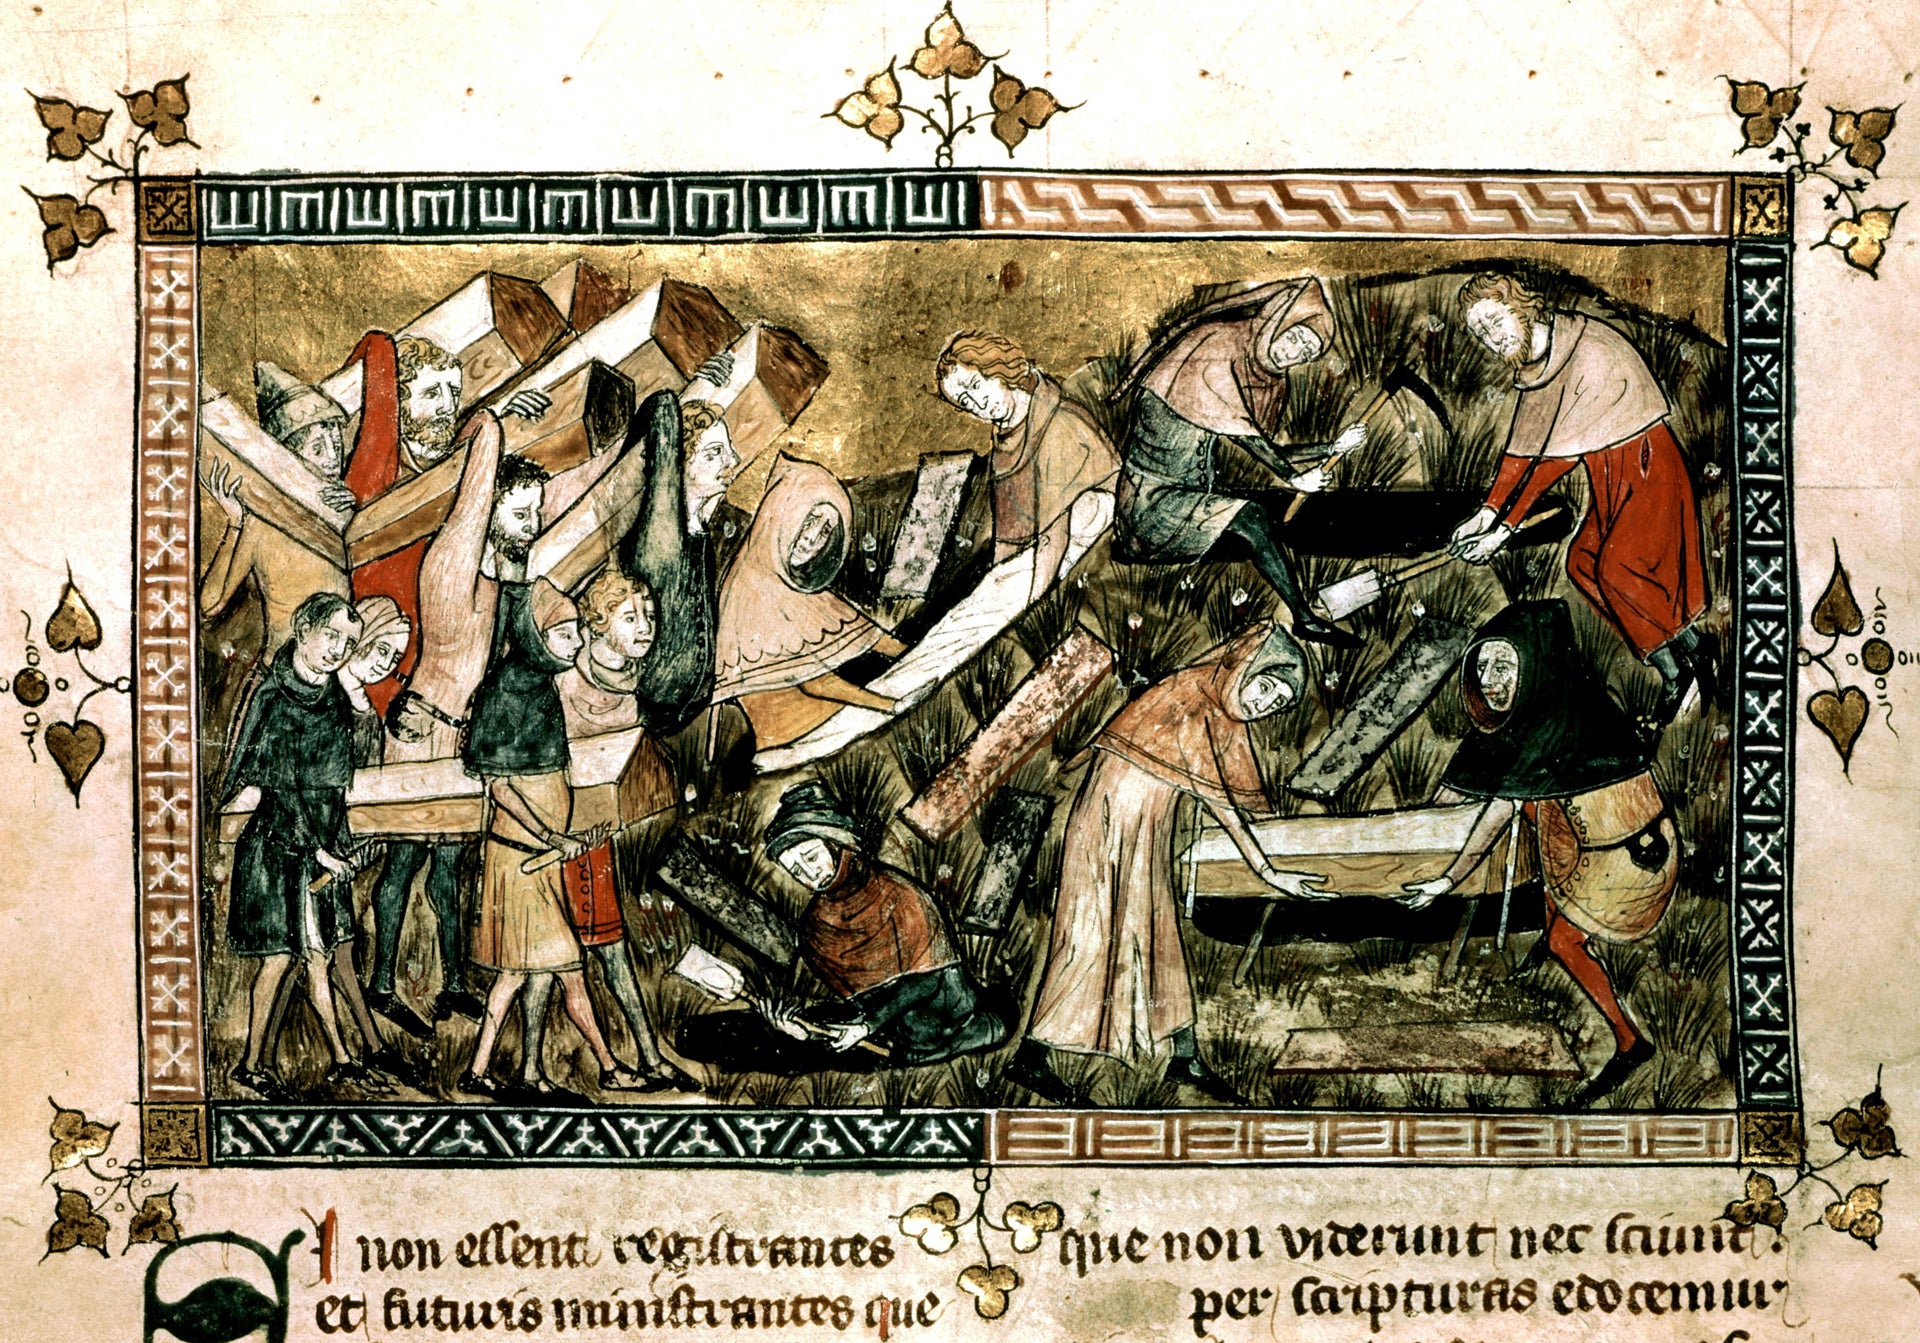 SI non essent registrantes
et futuris ministrantes que
que non viderunt nec sciunt.
per scripturas edocemur